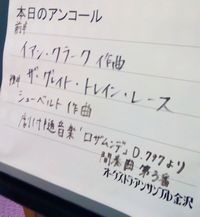 本日のアンコール
前半
イアン・クラーク 作曲
ザ・グレイト・トレイン・レース
後半
シューベルト 作曲
付随音楽「ロザムンデ」D.797より
間奏曲 第3番
オーケストラアンサンブル金沢